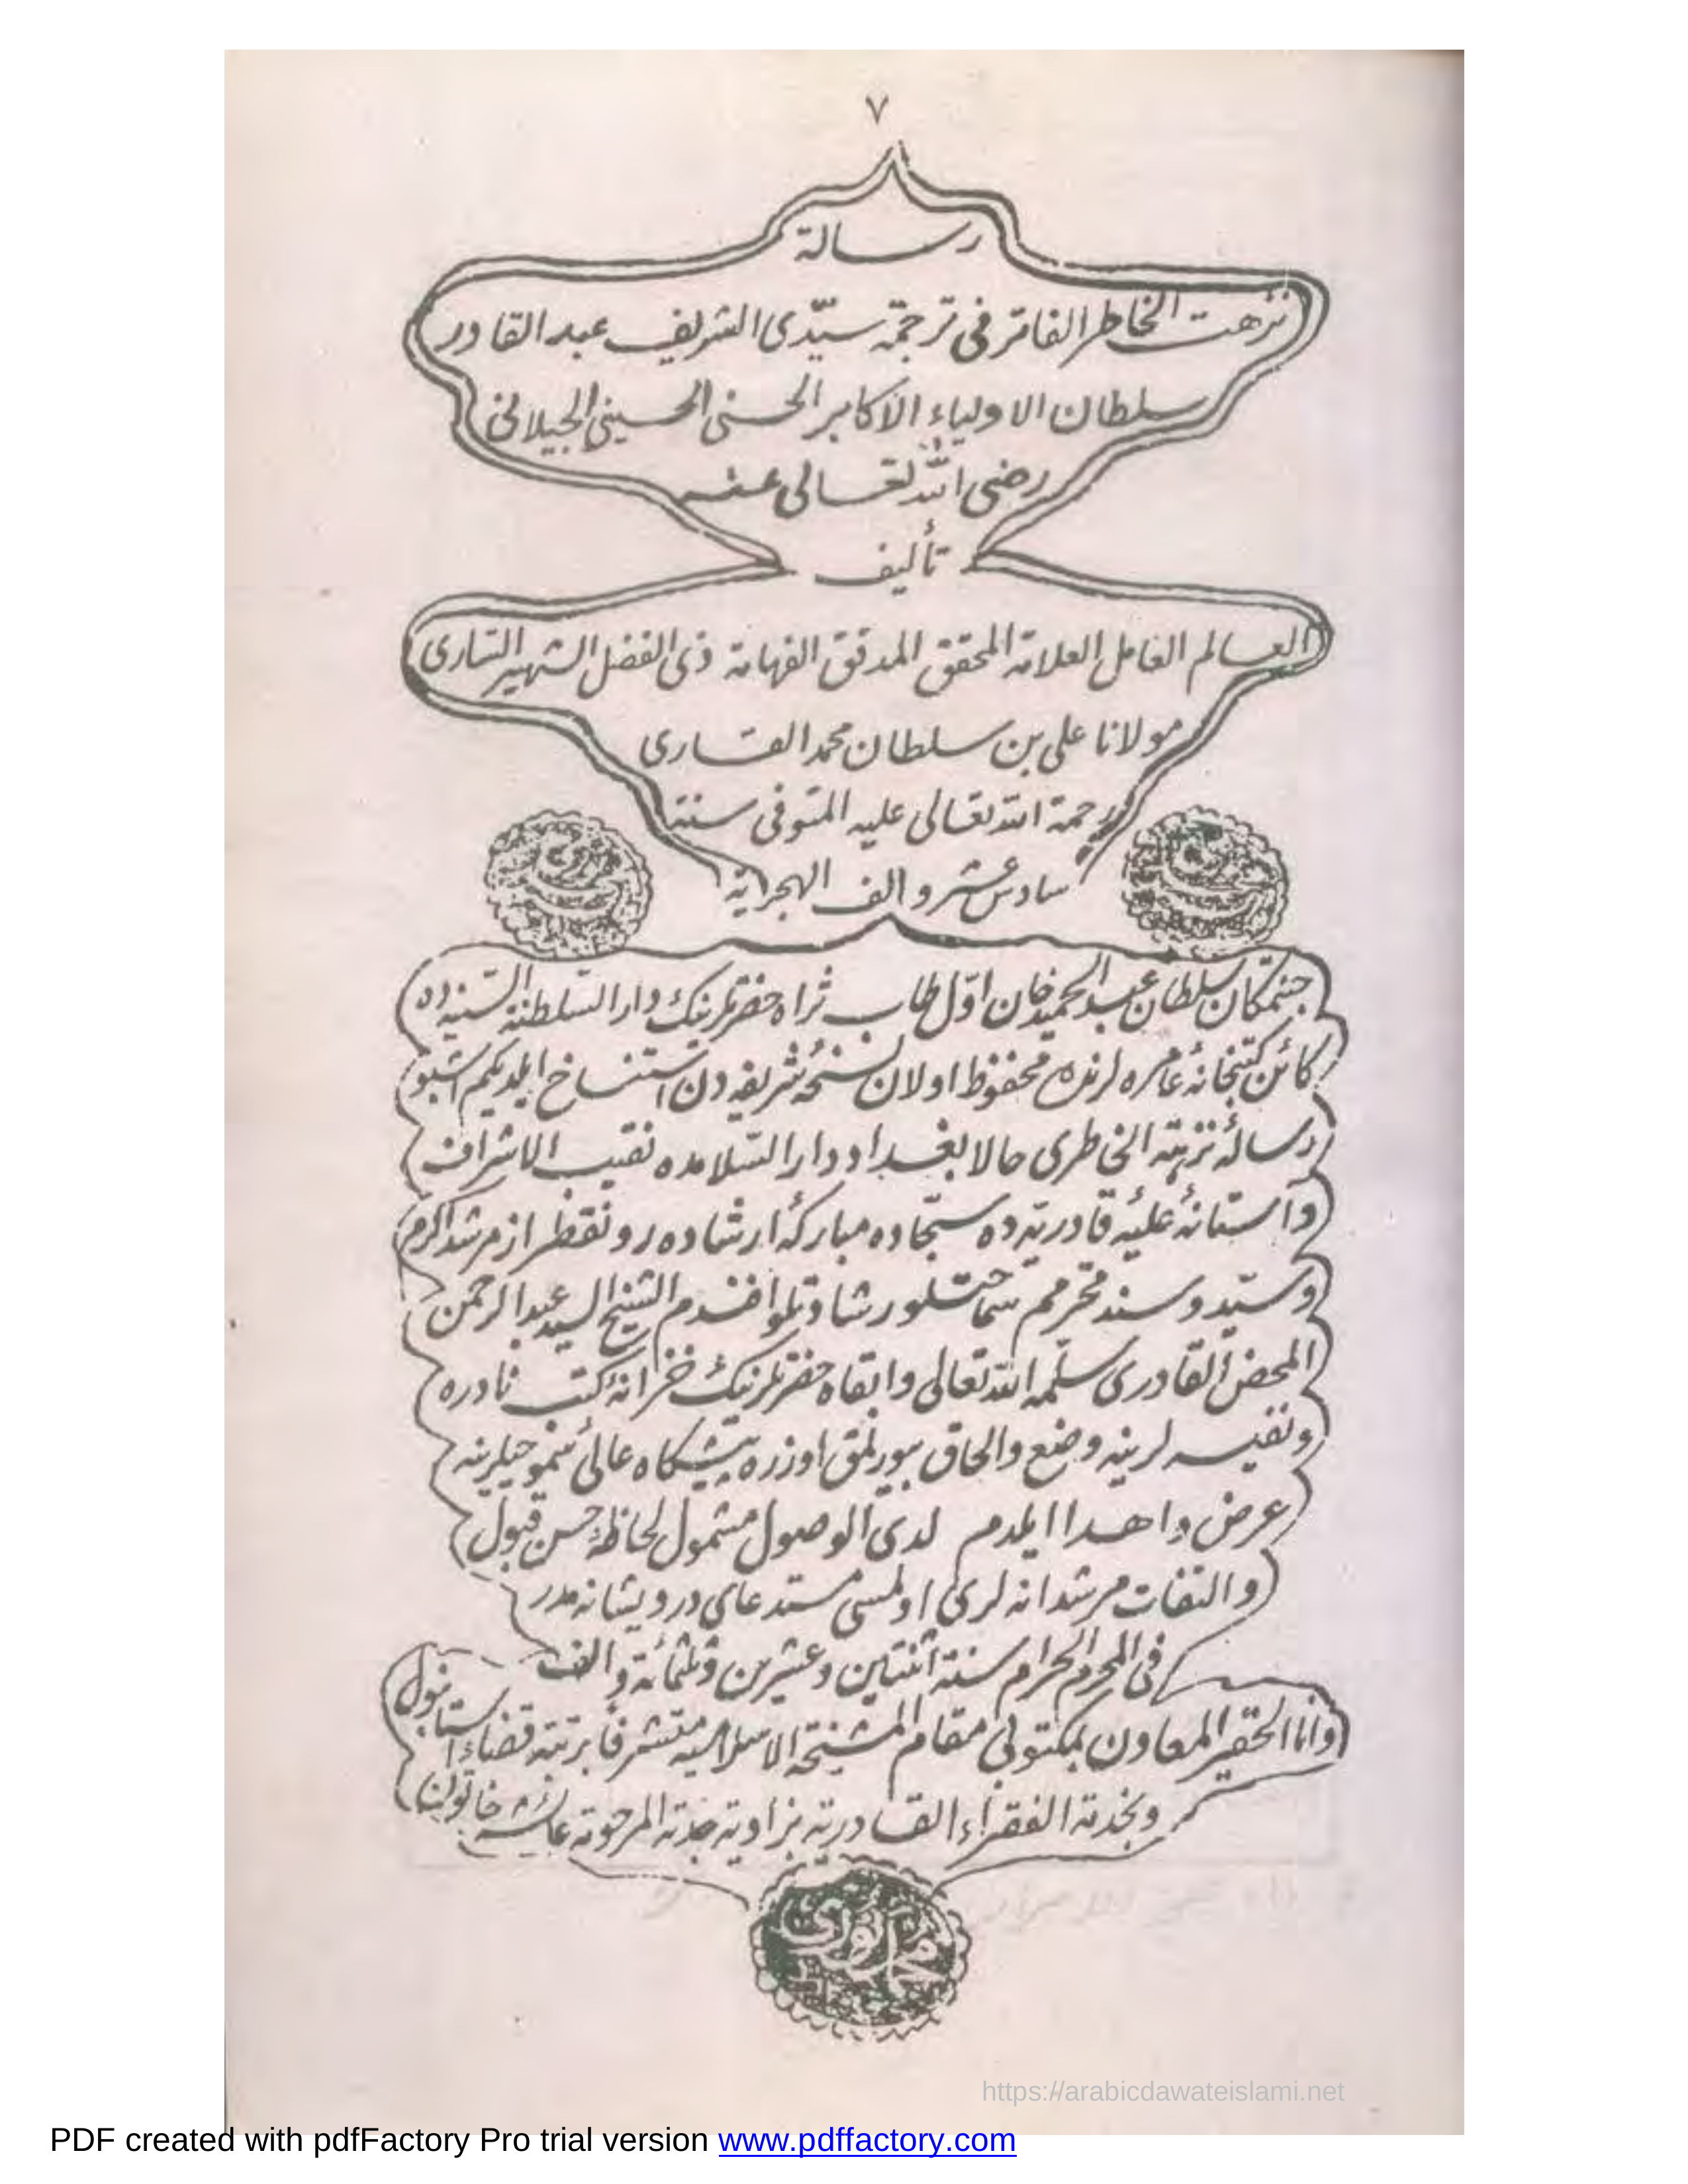 ٧
رسالة
نزهت الخاطر الفاتر فى ترجمة سيّدى الشريف عبد القادر
سلطان الاولياء الاكابر الحسنى الحسينى الجيلانى
رضى الله تعالى عنه
تأليف
العالم العامل العلامة المحقق المدقق الفهامة ذى الفضل الشهير السارى
مولانا على بن سلطان محمد القارى
رحمة الله تعالى عليه المتوفى سنة
سادس عشر و الف الهجرية
جنتمكان سلطان عبد الحميد خان اوّل طاب ثراه حضرتلرينك دار السّلطنة السّنيه ده
كائن كتبخانۀ عامره لرنده محفوظ اولان نسخۀ شريفه دن استنساخ ايلديكم اشبو
رسالۀ نزهة الخاطرى حالا بغداد دار السّلامده نقيب الاشراف
و آستانۀ عليۀ قادريه ده سجّاده مباركۀ ارشاده رونقطراز مرشد اكرم
و سيّد و سند محترمم سماحتلو رشادتلو افندم الشيخ السيد عبد الرحمن
المحض القادرى سلّمه الله تعالى وابقاه حضرتلرينك خزانۀ كتب نادره
و نفيسه لرينه وضع والحاق بيورلمق اوزره پيشكاه عالئ سموحيلرينه
عرض و اهدا ايلدم لدى الوصول مشمول لحاظۀ حسن قبول
و التفات مرشدانه لرى اولمسى مستدعاى درويشانه مدر
فى المحرم الحرام سنة اثنتين و عشرين و ثلثمائة و الف
وانا الحقير المعاون بمكتوبى مقام المشيخة الاسلاميه متشرفا برتبة قضاء استانبول
وبخدمة الفقراء القادرية بزاوية جدته المرحومة عائشه خاتون
https://arabicdawateislami.net
PDF created with pdfFactory Pro trial version www.pdffactory.com